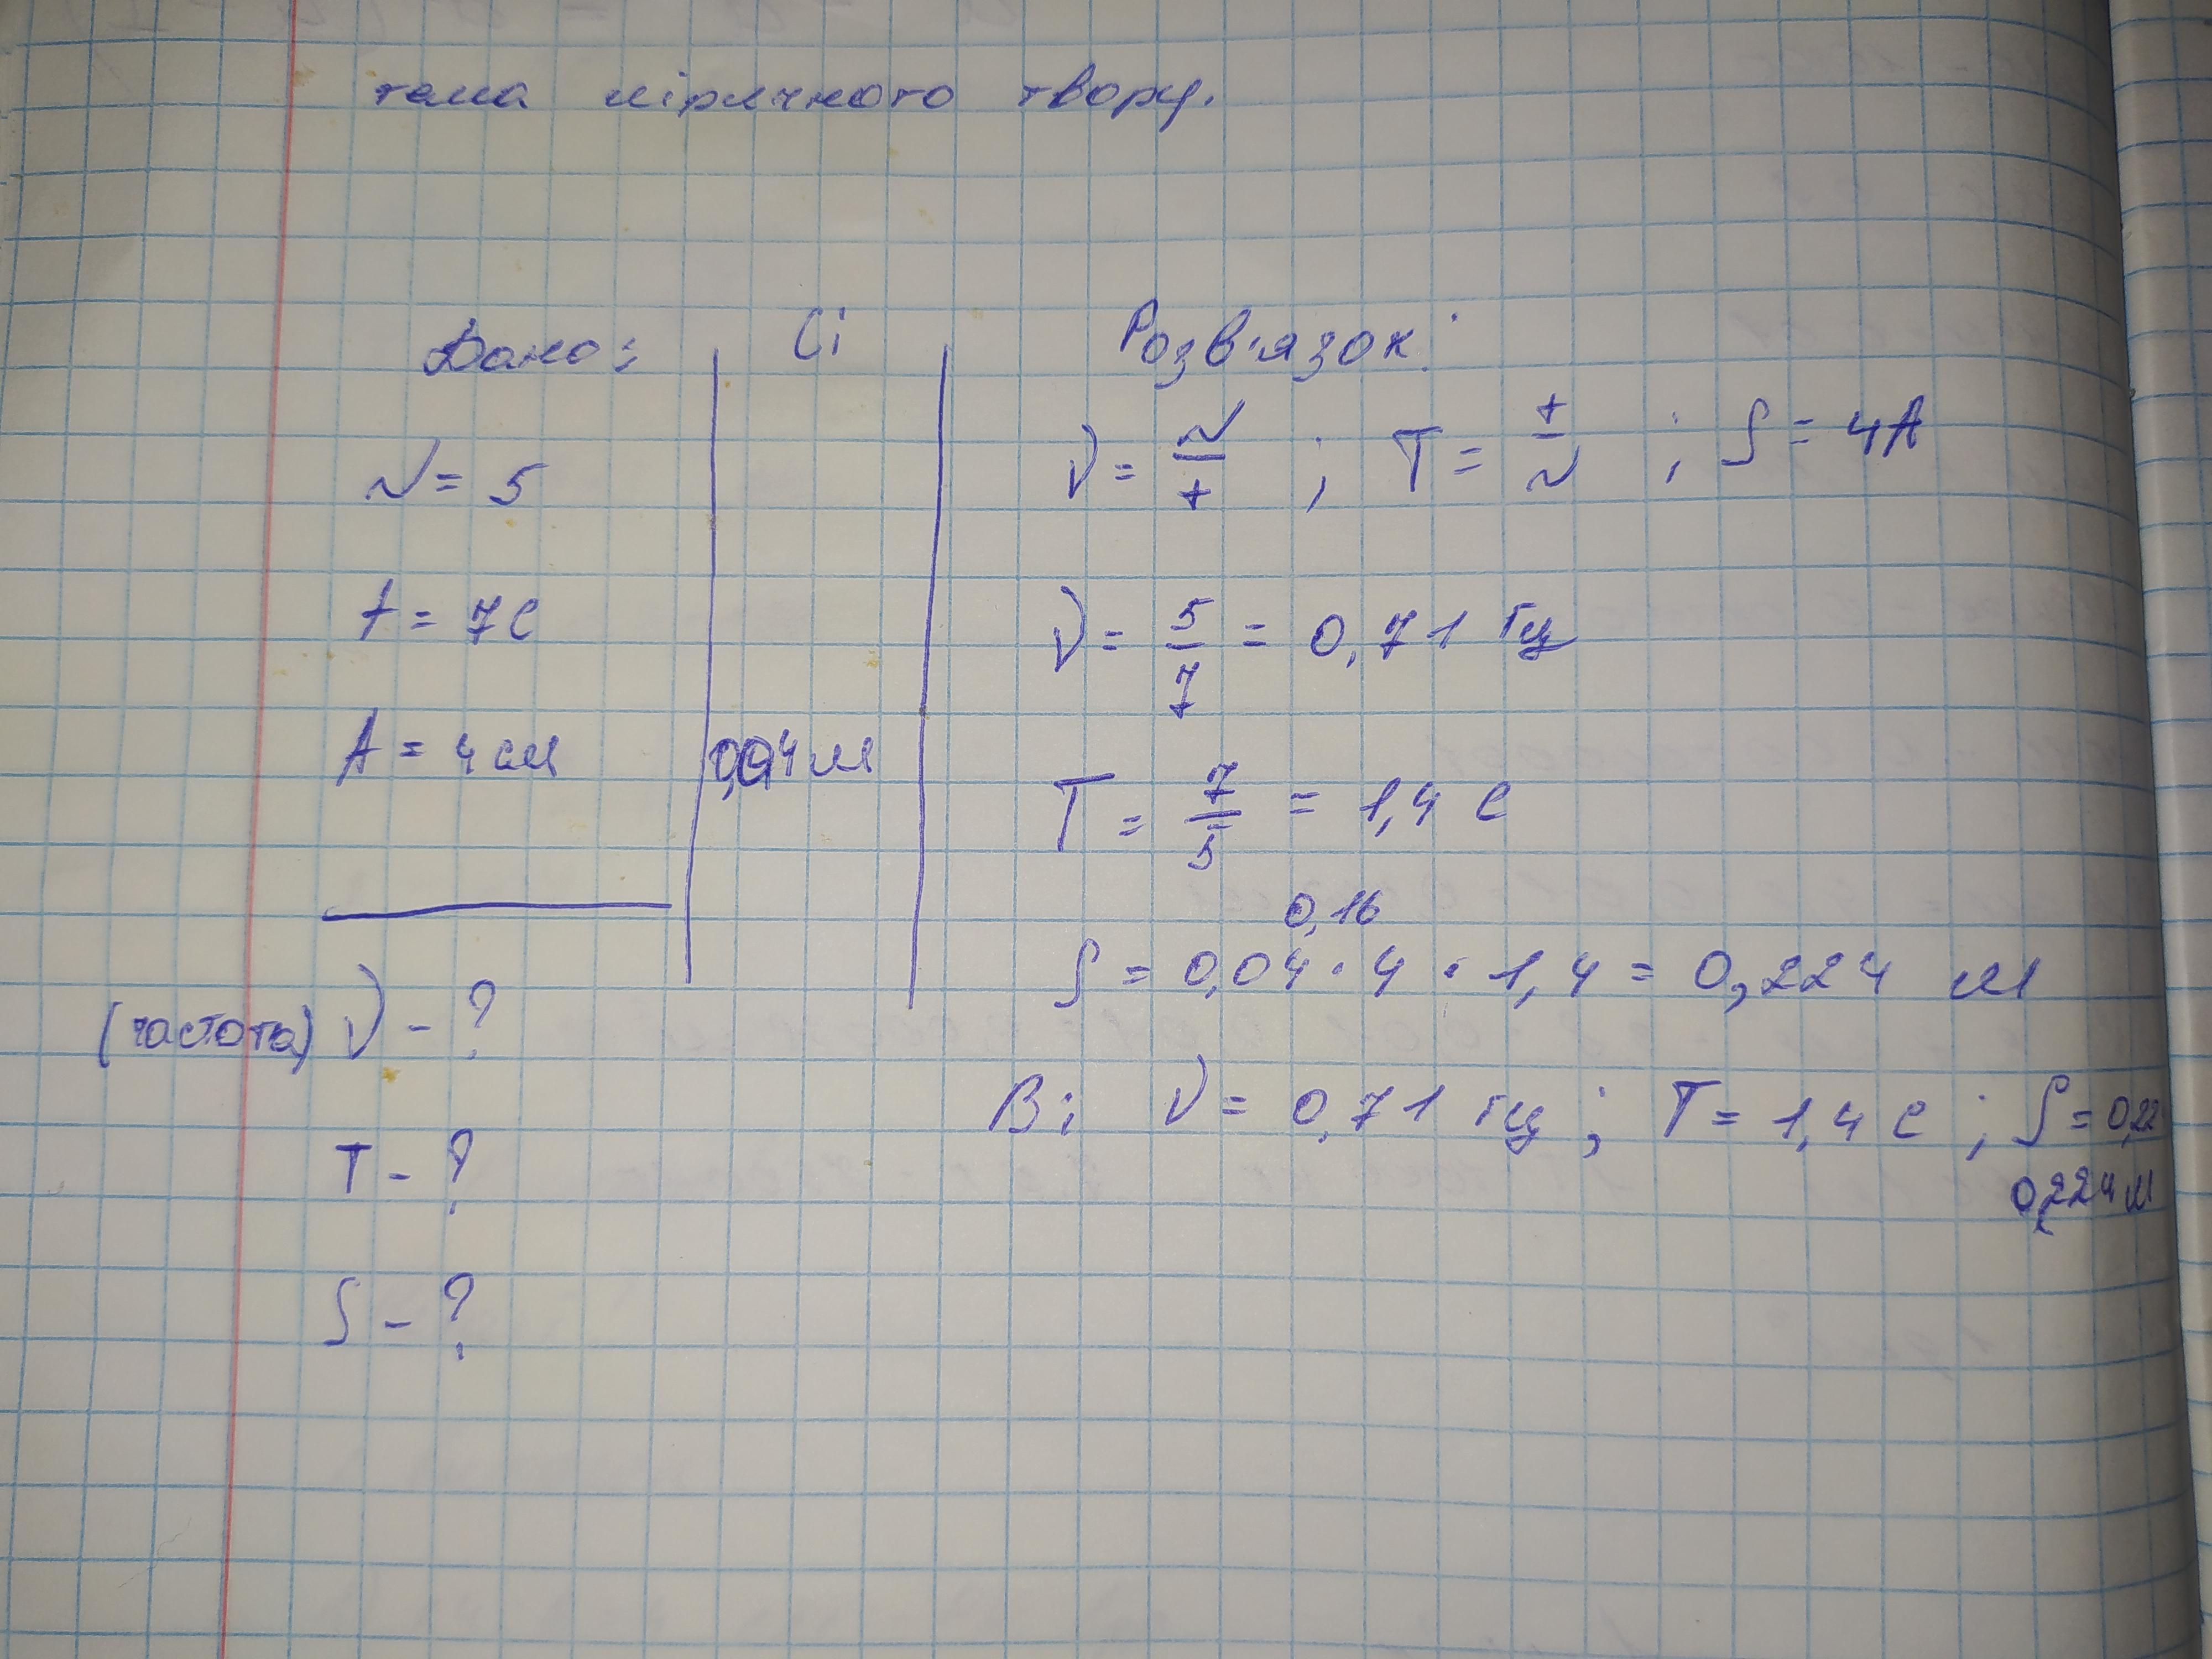 тема ліричного твору.
Дано:
Сі
Розв'язок:
N = 5
t = 7 с
A = 4 см
0,04 м
(частота) ν - ?
T - ?
S - ?
ν = N/t ; T = t/N ; S = 4A
ν = 5/7 = 0,71 Гц
T = 7/5 = 1,4 с
0,16
S = 0,04 · 4 · 1,4 = 0,224 м
В: ν = 0,71 гц ; T = 1,4 с ; S = 0,22
0,224 м